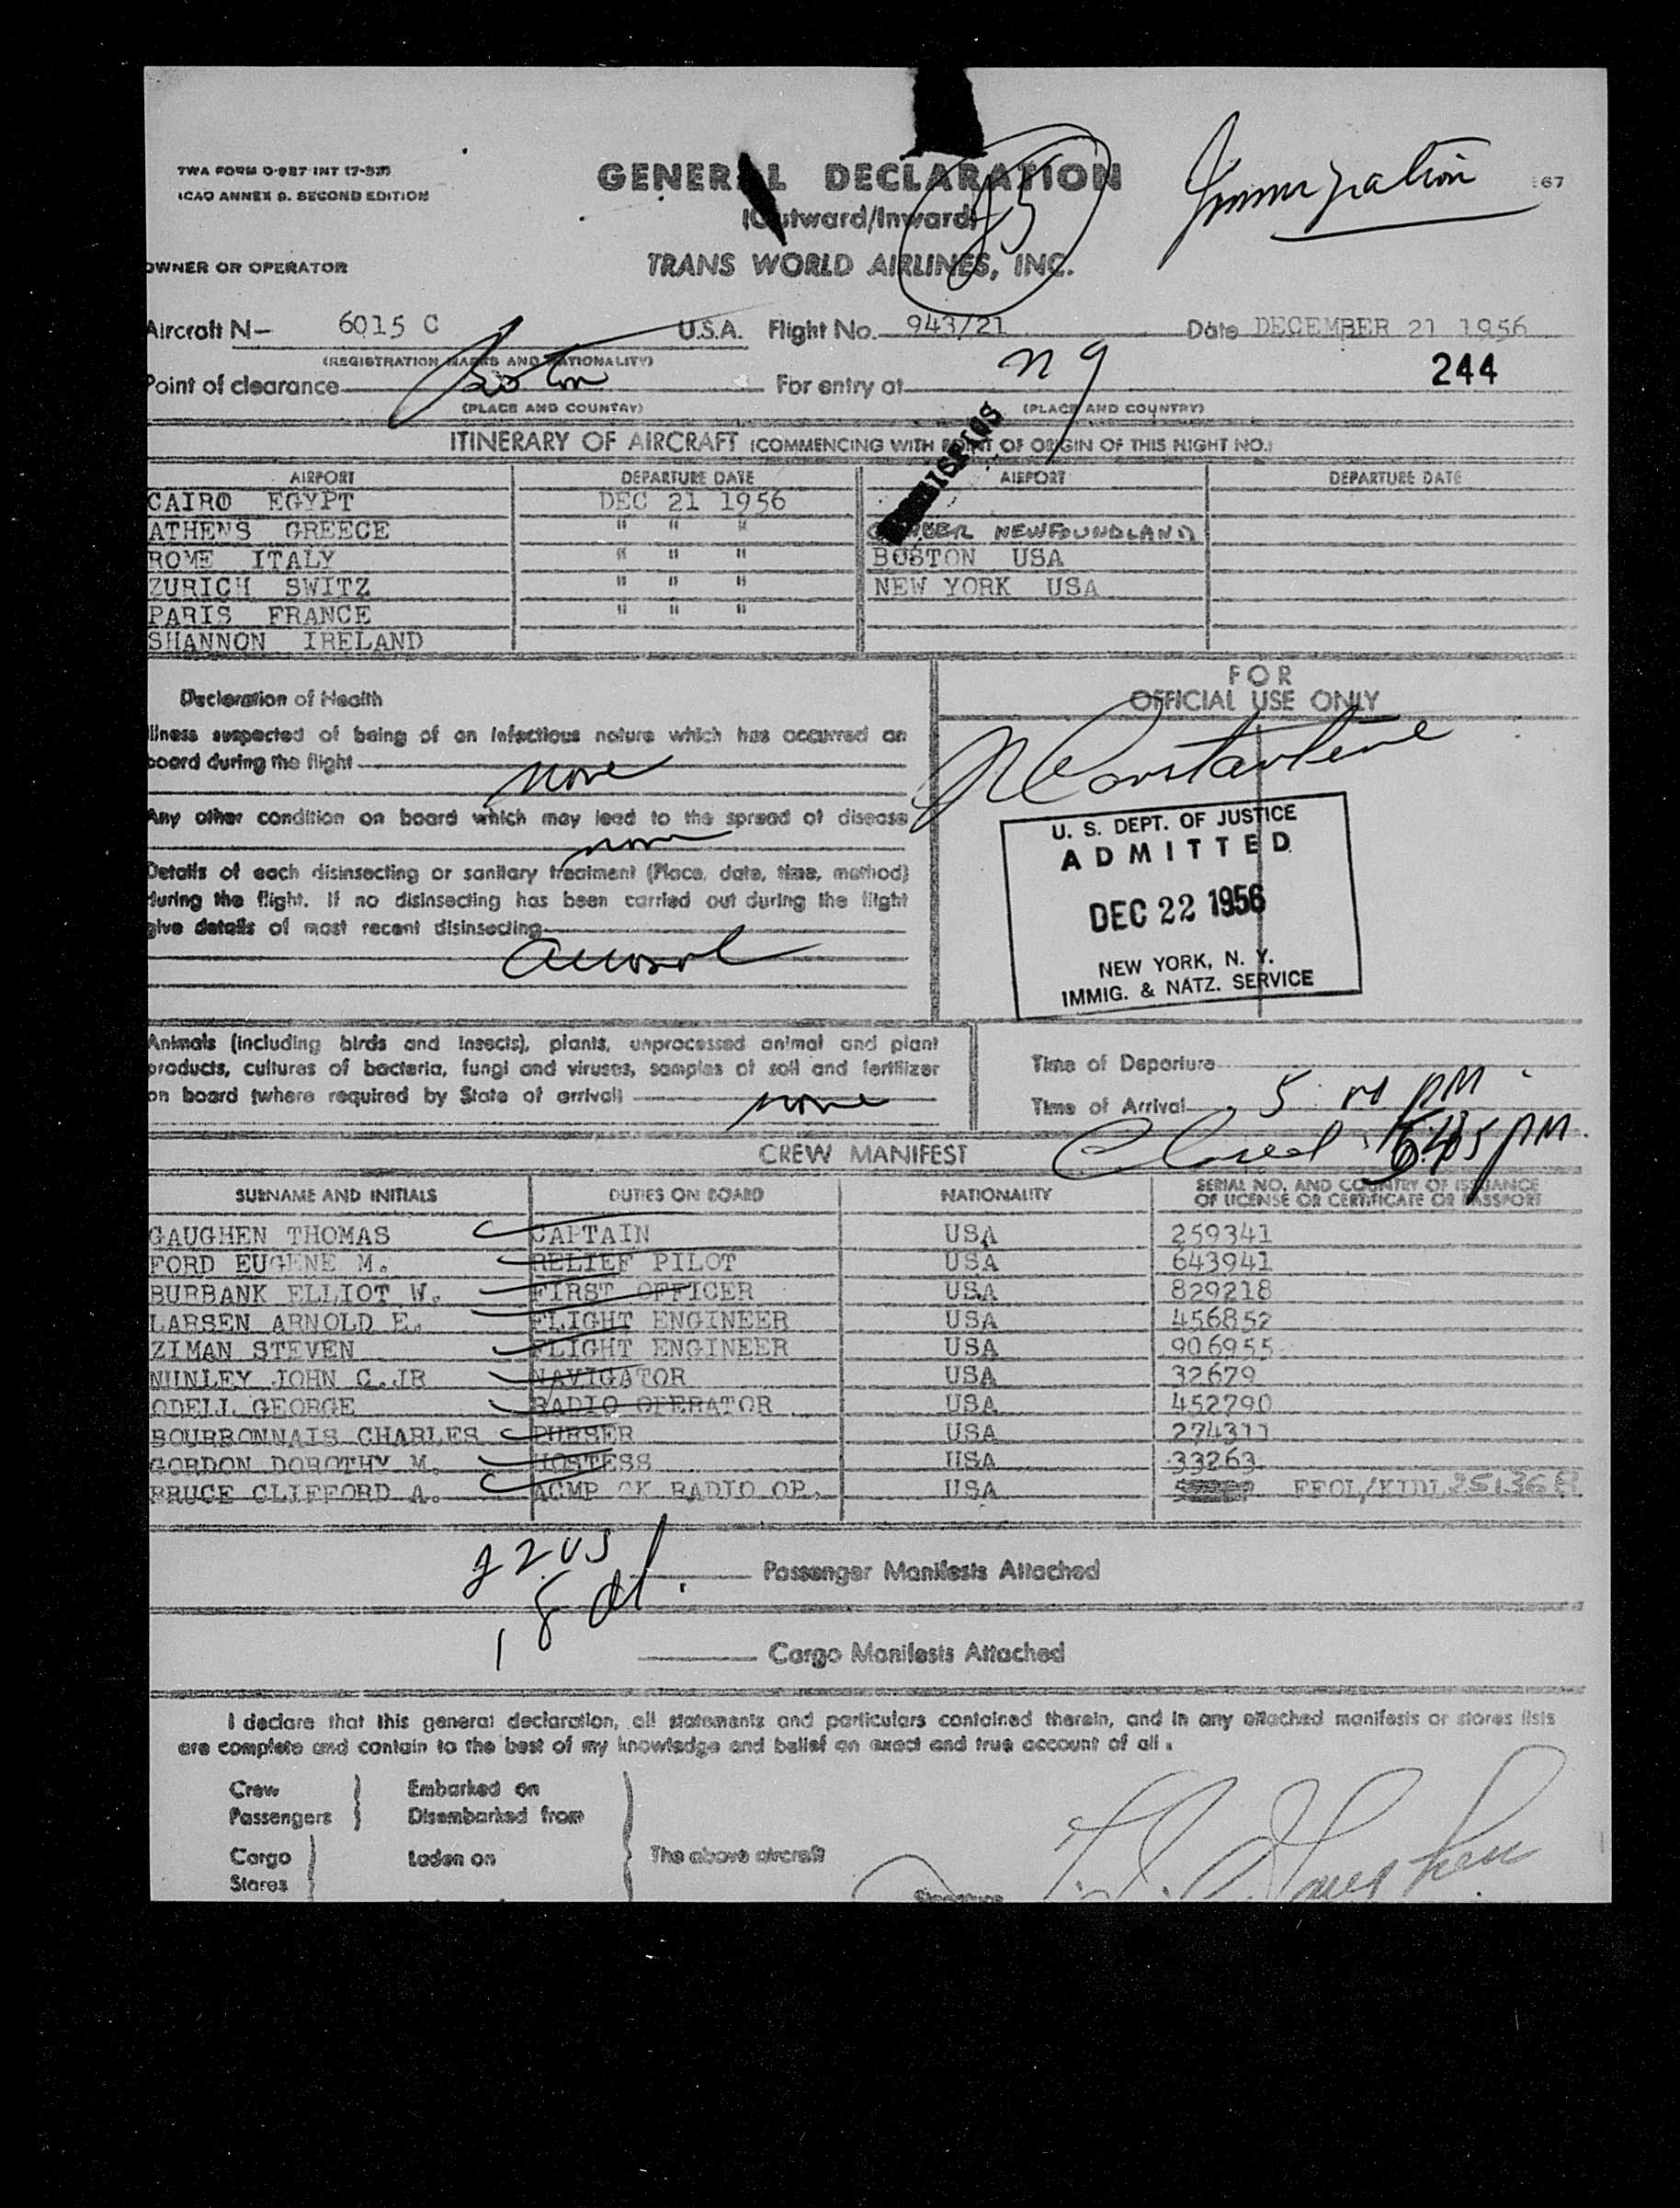 TWA FORM O-927 INT (7-53)
ICAO ANNEX 9. SECOND EDITION
GENERAL DECLARATION
(Outward/Inward)
Immigration
67
OWNER OR OPERATOR
TRANS WORLD AIRLINES, INC.
Aircraft N— 6015 C U.S.A. Flight No. 943/21 Date DECEMBER 21 1956
(REGISTRATION MARKS AND NATIONALITY)
244
Point of clearance Boston For entry at NY
(PLACE AND COUNTRY) (PLACE AND COUNTRY)
ITINERARY OF AIRCRAFT (COMMENCING WITH POINT OF ORIGIN OF THIS FLIGHT NO.)
AIRPORT DEPARTURE DATE AIRPORT DEPARTURE DATE
CAIRO EGYPT DEC 21 1956
ATHENS GREECE " " " GANDER NEWFOUNDLAND
ROME ITALY " " " BOSTON USA
ZURICH SWITZ " " " NEW YORK USA
PARIS FRANCE " " "
SHANNON IRELAND
FOR
OFFICIAL USE ONLY
Declaration of Health
Illness suspected of being of an infectious nature which has occurred on
board during the flight none
Any other condition on board which may lead to the spread of disease
none
Details of each disinsecting or sanitary treatment (Place, date, time, method)
during the flight. If no disinsecting has been carried out during the flight
give details of most recent disinsecting
aerosol
Constantine
U. S. DEPT. OF JUSTICE
ADMITTED
DEC 22 1956
NEW YORK, N. Y.
IMMIG. & NATZ. SERVICE
Animals (including birds and insects), plants, unprocessed animal and plant
products, cultures of bacteria, fungi and viruses, samples of soil and fertilizer
on board (where required by State of arrival) none
Time of Departure
Time of Arrival 5 PM
Closed PM
CREW MANIFEST
SURNAME AND INITIALS DUTIES ON BOARD NATIONALITY SERIAL NO. AND COUNTRY OF ISSUANCE
OF LICENSE OR CERTIFICATE OR PASSPORT
GAUGHEN THOMAS CAPTAIN USA 259341
FORD EUGENE M. RELIEF PILOT USA 643941
BURBANK ELLIOT W. FIRST OFFICER USA 829218
LARSEN ARNOLD E. FLIGHT ENGINEER USA 456852
ZIMAN STEVEN FLIGHT ENGINEER USA 906955
NUNLEY JOHN C.JR NAVIGATOR USA 32679
ODELL GEORGE RADIO OPERATOR USA 452790
BOURBONNAIS CHARLES PURSER USA 274311
GORDON DOROTHY M. HOSTESS USA 33263
BRUCE CLIFFORD A. ACMP CK RADIO OP. USA
22 US
Passenger Manifests Attached
Cargo Manifests Attached
I declare that this general declaration, all statements and particulars contained therein, and in any attached manifests or stores lists
are complete and contain to the best of my knowledge and belief an exact and true account of all.
Crew Embarked on
Passengers Disembarked from
Cargo Laden on The above aircraft
Stores
Signature